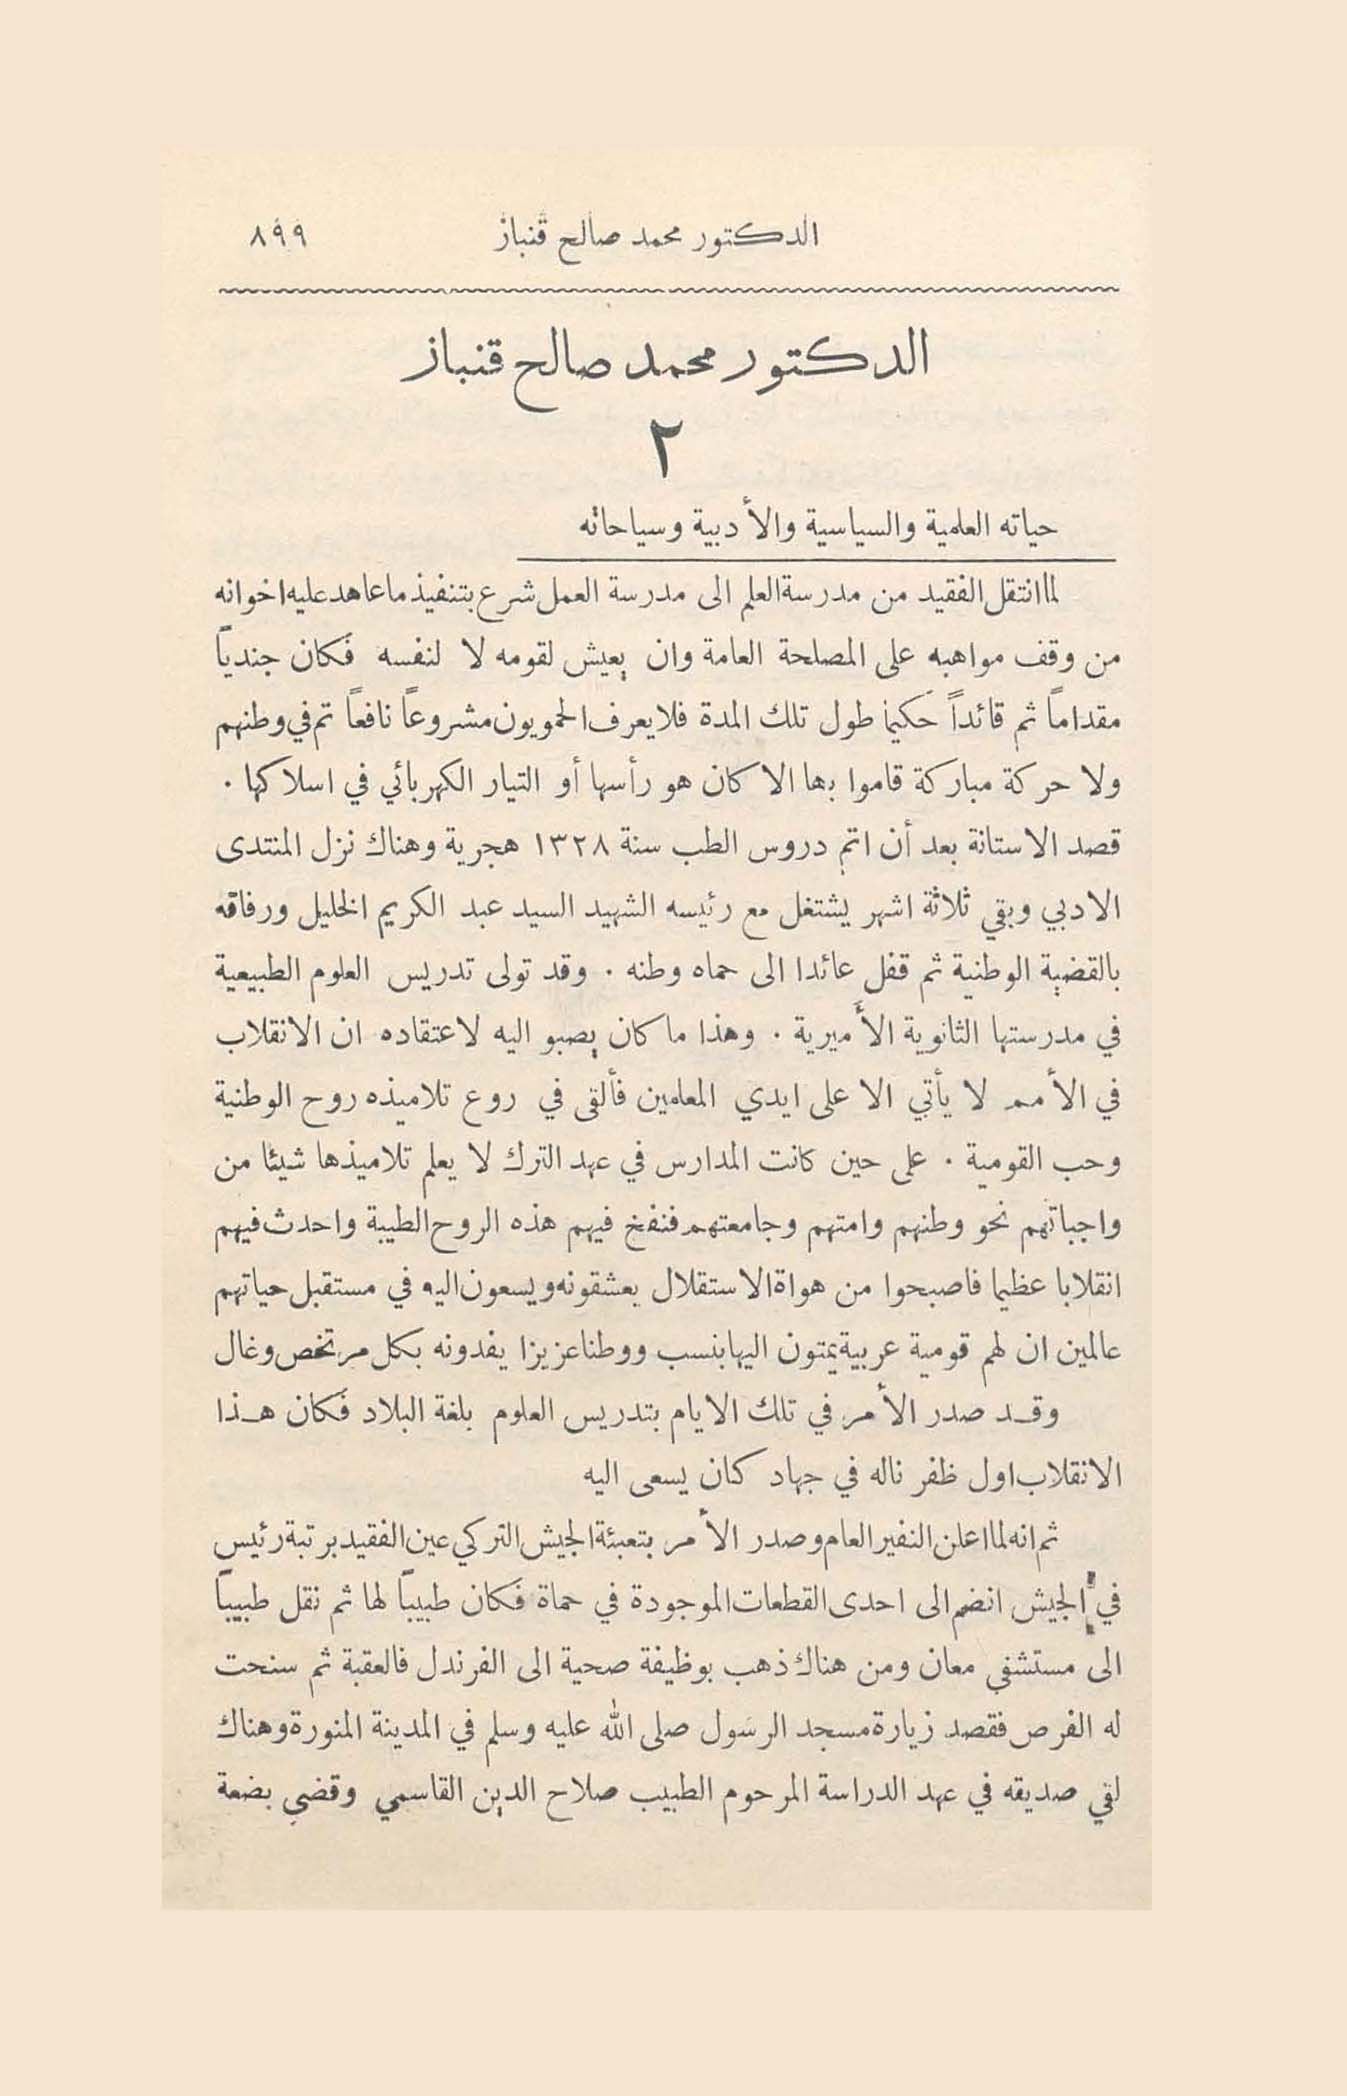 الدكتور محمد صالح قنباز ٨٩٩
الدكتور محمد صالح قنباز
٢
حياته العلمية والسياسية والأدبية وسياحاته
لما انتقل الفقيد من مدرسة العلم الى مدرسة العمل شرع بتنفيذ ما عاهد عليه اخوانه
من وقف مواهبه على المصلحة العامة وان يعيش لقومه لا لنفسه فكان جندياً
مقداماً ثم قائداً حكيما طول تلك المدة فلا يعرف الحمويون مشروعاً نافعاً تم في وطنهم
ولا حركة مباركة قاموا بها الا كان هو رأسها أو التيار الكهربائي في اسلاكها .
قصد الاستانة بعد أن اتم دروس الطب سنة ١٣٢٨ هجرية وهناك نزل المنتدى
الادبي وبقي ثلاثة اشهر يشتغل مع رئيسه الشهيد السيد عبد الكريم الخليل ورفاقه
بالقضية الوطنية ثم قفل عائدا الى حماه وطنه . وقد تولى تدريس العلوم الطبيعية
في مدرستها الثانوية الأميرية . وهذا ما كان يصبو اليه لاعتقاده ان الانقلاب
في الأمم لا يأتي الا على ايدي المعلمين فألقى في روع تلاميذه روح الوطنية
وحب القومية . على حين كانت المدارس في عهد الترك لا يعلم تلاميذها شيئا من
واجباتهم نحو وطنهم وامتهم وجامعتهم فنفخ فيهم هذه الروح الطيبة واحدث فيهم
انقلابا عظيما فاصبحوا من هواة الاستقلال يعشقونه ويسعون اليه في مستقبل حياتهم
عالمين ان لهم قومية عربية يمتون اليها بنسب ووطنا عزيزا يفدونه بكل مرتخص وغال
وقد صدر الأمر في تلك الايام بتدريس العلوم بلغة البلاد فكان هذا
الانقلاب اول ظفر ناله في جهاد كان يسعى اليه
ثم انه لما اعلن النفير العام وصدر الأمر بتعبئة الجيش التركي عين الفقيد برتبة رئيس
في الجيش انضم الى احدى القطعات الموجودة في حماة فكان طبيباً لها ثم نقل طبيباً
الى مستشفي معان ومن هناك ذهب بوظيفة صحية الى الفرندل فالعقبة ثم سنحت
له الفرص فقصد زيارة مسجد الرسول صلى الله عليه وسلم في المدينة المنورة وهناك
لقي صديقه في عهد الدراسة المرحوم الطبيب صلاح الدين القاسمي وقضي بضعة